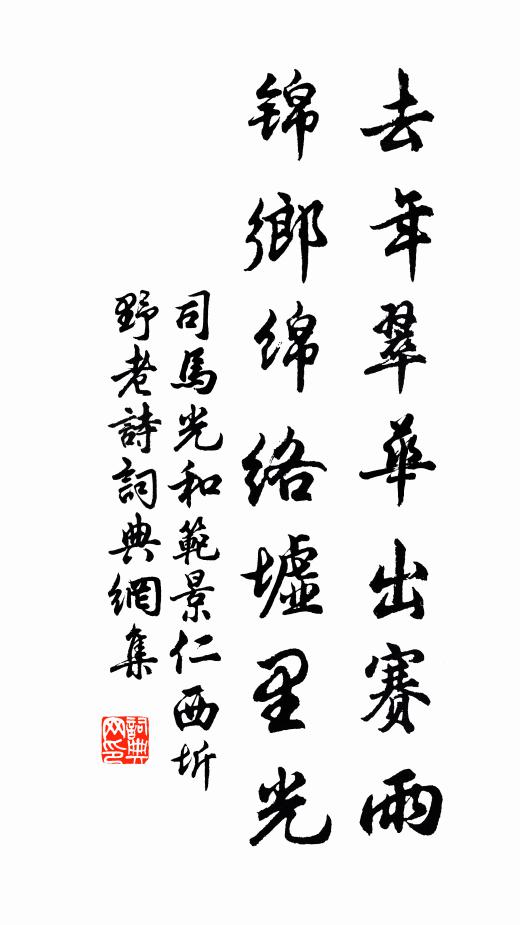 去年翠華出賽雨
锦鄉綿络墟里光
司馬光和範景仁西圻
野老詩詞典網集
詞典网印